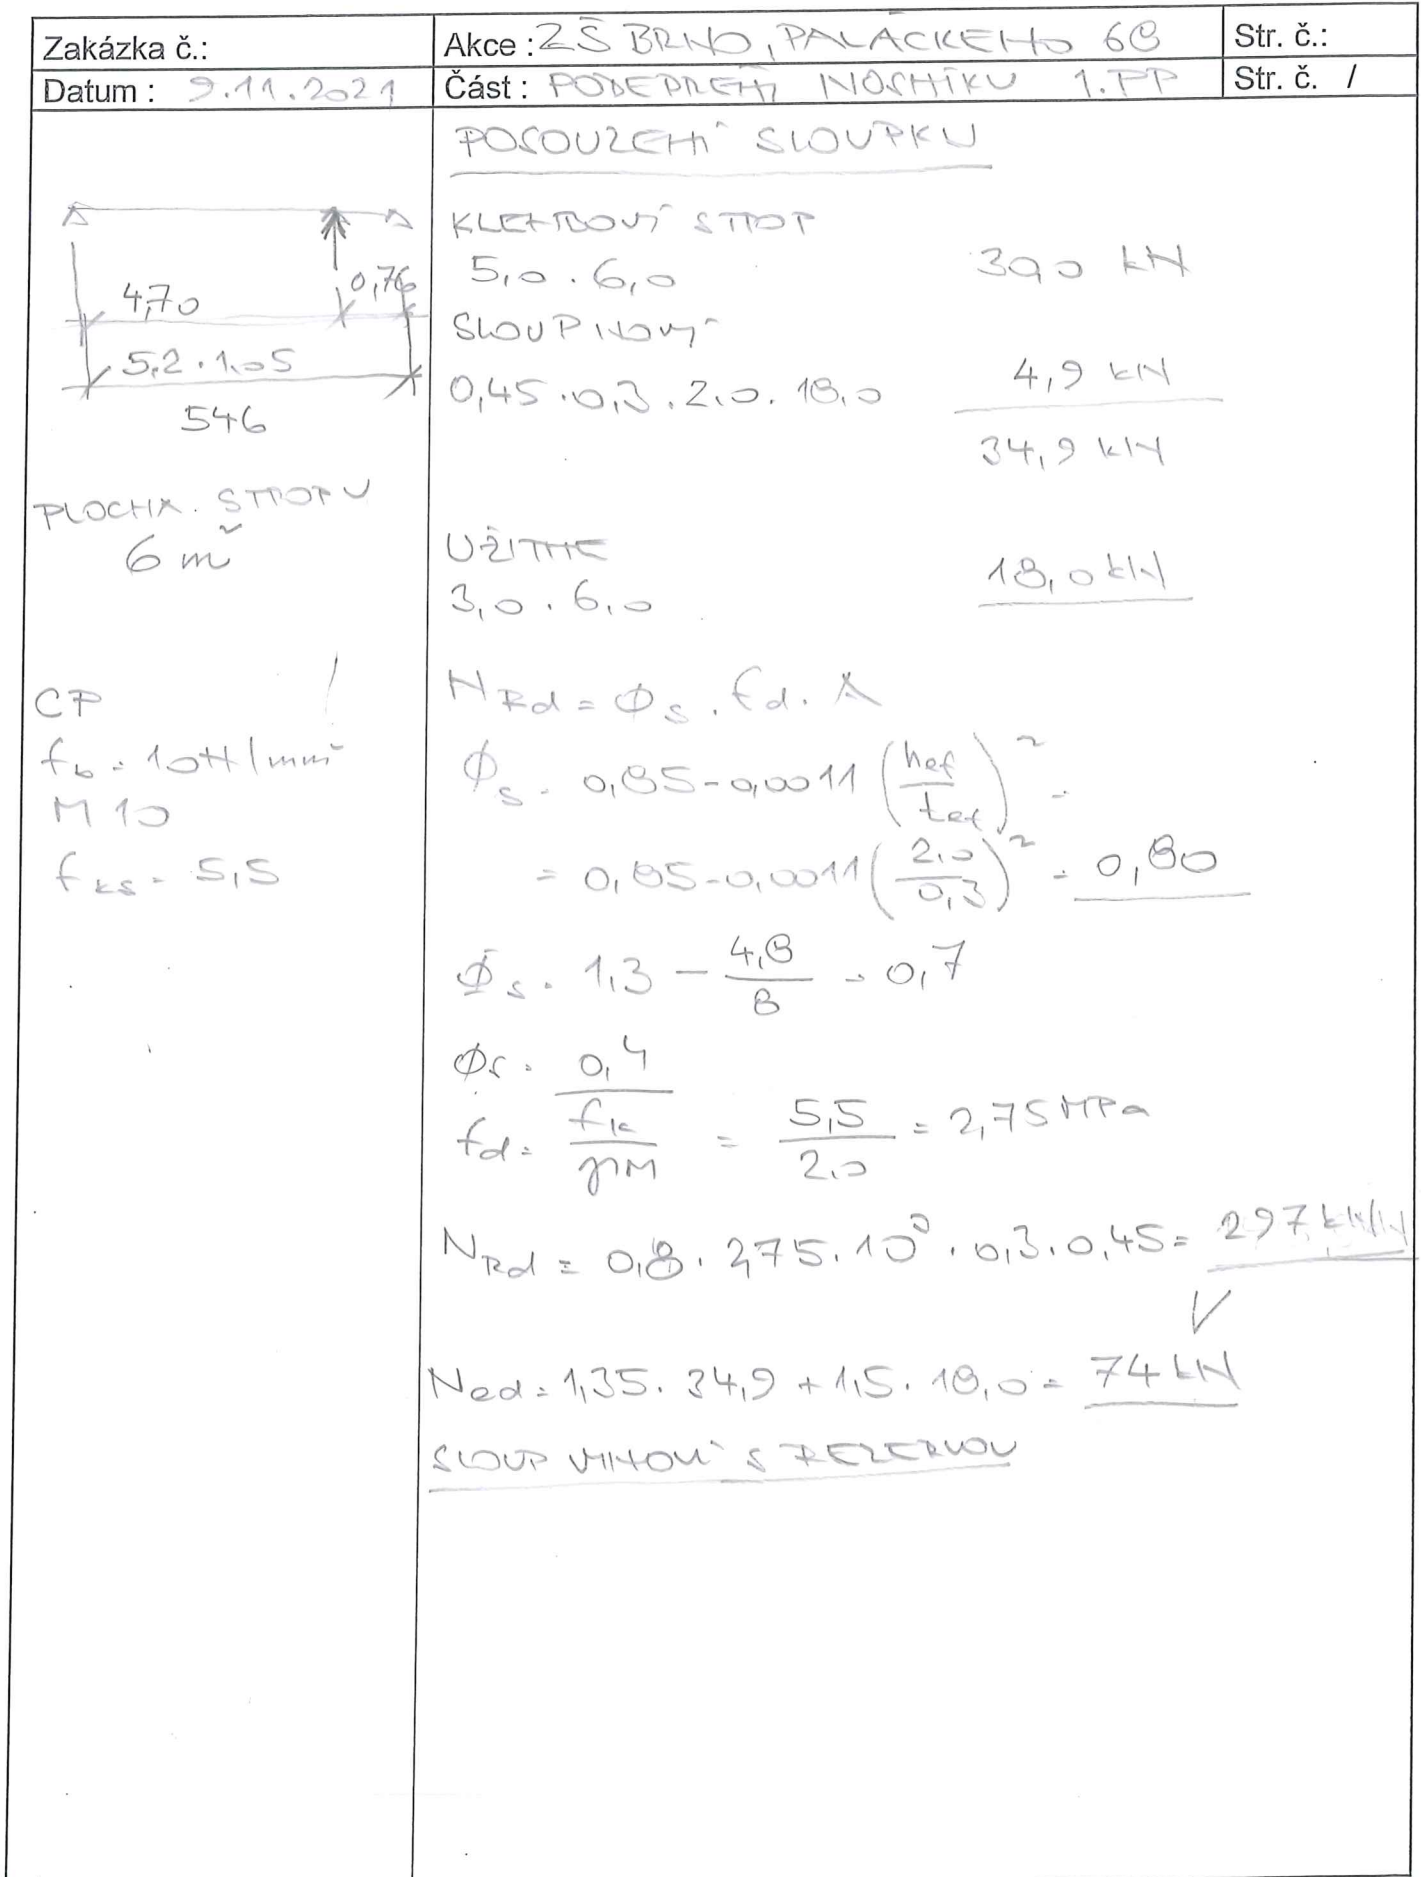 Zakázka č.:
Akce : ZŠ BRNO, PALACKÉHO 68
Str. č.:
Datum : 9.11.2021
Část : PODEPŘENÍ NOSNÍKU 1.PP
Str. č. /
POSOUZENÍ SLOUPKU
4,70
0,76
5,2 . 1,05
546
PLOCHA STROPU
6 m²
CP
f b = 10 N/mm²
M 10
f ks = 5,5
KLENBOVÝ STROP
5,0 . 6,0 30,0 kN
SLOUP NOVÝ
0,45 . 0,3 . 2,0 . 18,0 4,9 kN
34,9 kN
UŽITNÉ
3,0 . 6,0 18,0 kN
N Rd = Φ s . f d . A
Φ s = 0,85 - 0,0011 (hef / tef)² =
= 0,85 - 0,0011 (2,0 / 0,3)² = 0,80
Φ s = 1,3 - 4,8 / 8 = 0,7
Φ s = 0,4
f d = f k / γM = 5,5 / 2,0 = 2,75 MPa
N Rd = 0,8 . 2,75 . 10³ . 0,3 . 0,45 = 297 kN
V
Ned = 1,35 . 34,9 + 1,5 . 18,0 = 74 kN
SLOUP VYHOVÍ S REZERVOU